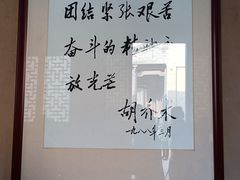 团结紧张艰苦
奋斗的精神永
放光芒
胡乔木
一九八八年三月